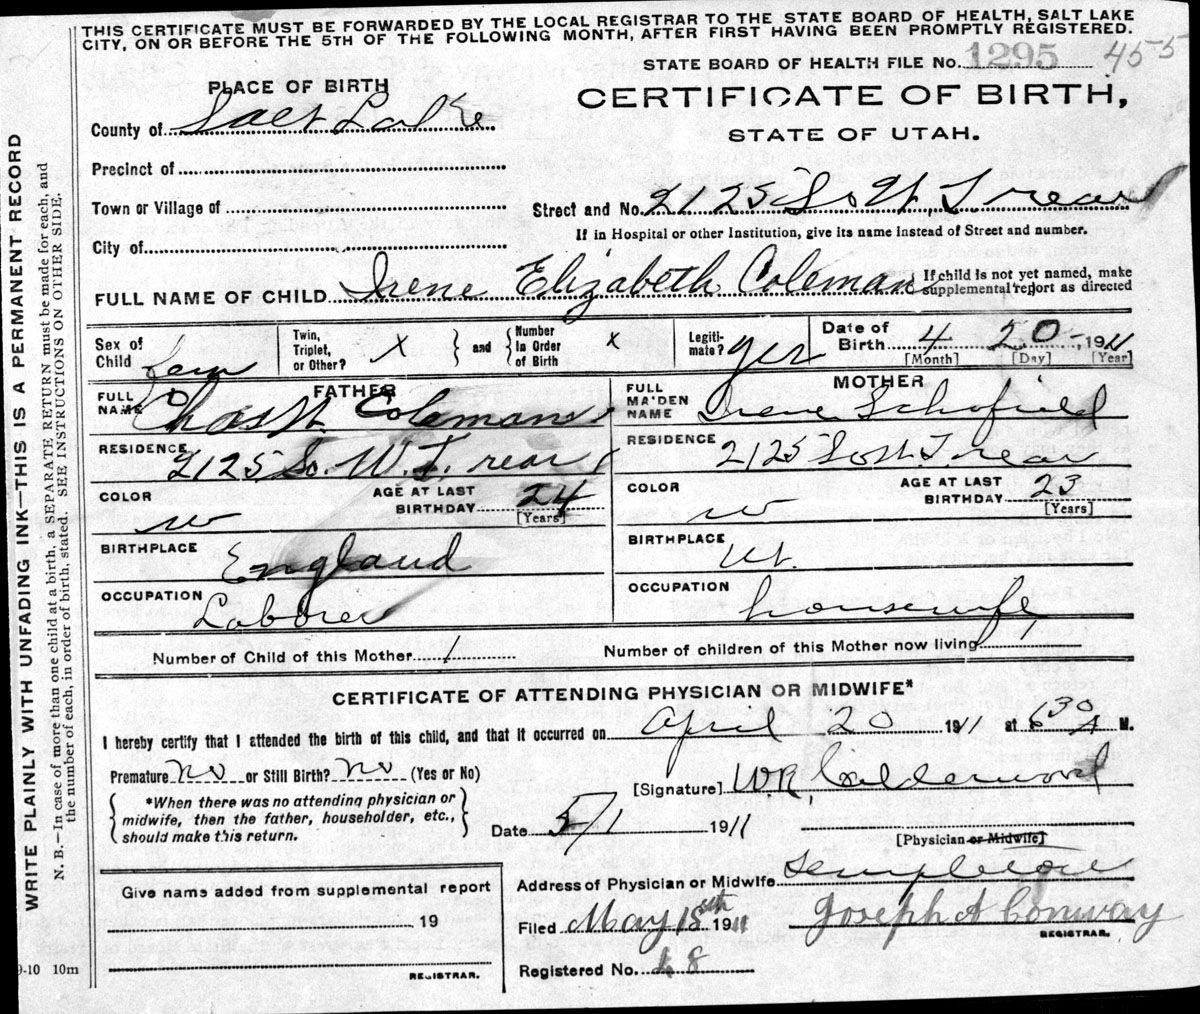 THIS CERTIFICATE MUST BE FORWARDED BY THE LOCAL REGISTRAR TO THE STATE BOARD OF HEALTH, SALT LAKE
CITY, ON OR BEFORE THE 5TH OF THE FOLLOWING MONTH, AFTER FIRST HAVING BEEN PROMPTLY REGISTERED.
STATE BOARD OF HEALTH FILE No. 1295 455
PLACE OF BIRTH
CERTIFICATE OF BIRTH,
STATE OF UTAH.
County of Salt Lake
Precinct of
Town or Village of
Street and No. 2125 So W. T. rear
City of
If in Hospital or other Institution, give its name instead of Street and number.
FULL NAME OF CHILD Irene Elizabeth Coleman
If child is not yet named, make
supplemental report as directed
Sex of Child fem
Twin, Triplet, or Other? X and Number In Order of Birth X
Legitimate? yes
Date of Birth 4 20 1911
[Month] [Day] [Year]
FATHER
FULL NAME Chas W. Coleman
RESIDENCE 2125 So. W. T. rear
COLOR w AGE AT LAST BIRTHDAY 24 [Years]
BIRTHPLACE England
OCCUPATION Laborer
MOTHER
FULL MA'DEN NAME Irene Schofield
RESIDENCE 2125 So W. T. rear
COLOR w AGE AT LAST BIRTHDAY 23 [Years]
BIRTHPLACE Ut.
OCCUPATION housewife
Number of Child of this Mother 1
Number of children of this Mother now living 1
CERTIFICATE OF ATTENDING PHYSICIAN OR MIDWIFE*
I hereby certify that I attended the birth of this child, and that it occurred on April 20 1911 at 6 30 A M.
Premature? no or Still Birth? no (Yes or No)
*When there was no attending physician or
midwife, then the father, householder, etc.,
should make this return.
[Signature] WR, Calderwood
Date 5/1 1911
[Physician or Midwife]
Address of Physician or Midwife Templeton
Give name added from supplemental report
19
REGISTRAR.
Filed May 18th 1911 Joseph A Conway
REGISTRAR.
Registered No. 48
9-10 10m
WRITE PLAINLY WITH UNFADING INK—THIS IS A PERMANENT RECORD
N. B.—In case of more than one child at a birth, a SEPARATE RETURN must be made for each, and
the number of each, in order of birth, stated. SEE INSTRUCTIONS ON OTHER SIDE.